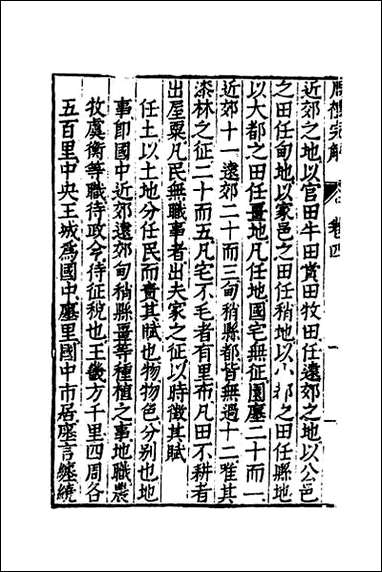 周禮完解 卷四 一
近郊之地以官田牛田賞田牧田任遠郊之地以公邑
之田任甸地以家邑之田任稍地以小都之田任縣地
以大都之田任畺地凡任地國宅無征園廛二十而一
近郊十一遠郊二十而三甸稍縣都皆無過十二唯其
漆林之征二十而五凡宅不毛者有里布凡田不耕者
出屋粟凡民無職事者出夫家之征以時徵其賦
任土以土地分任民而責其賦也物物色分别也地
事即國中近郊遠郊甸稍縣畺等種植之事地職農
牧虞衡等職待政令侍征稅也王畿方千里四周各
五百里中央王城爲國中廛里國中市居廛言纏繞